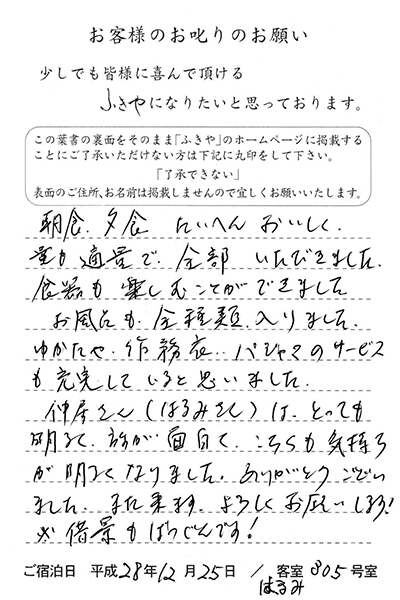 お客様のお叱りのお願い
少しでも皆様に喜んで頂ける
ふきやになりたいと思っております。
この葉書の裏面をそのまま「ふきや」のホームページに掲載する
ことにご了承いただけない方は下記に丸印をして下さい。
「了承できない」
表面のご住所、お名前は掲載しませんので宜しくお願いいたします。
朝食、夕食 たいへん おいしく、
量も 適量で、全部 いただきました。
食器も 楽しむことができました
お風呂も、全種類、入りました。
ゆかたや、作務衣、パジャマのサービス
も充実していると思いました。
仲居さん(はるみさん)は、とっても
明るく、話が 面白く、こちらも 気持ち
が 明るくなりました。ありがとうござい
ました。また来ます。よろしくお願いします!
※ 借景もばつぐんです!
ご宿泊日 平成28年12月25日 / 客室 805号室
はるみ